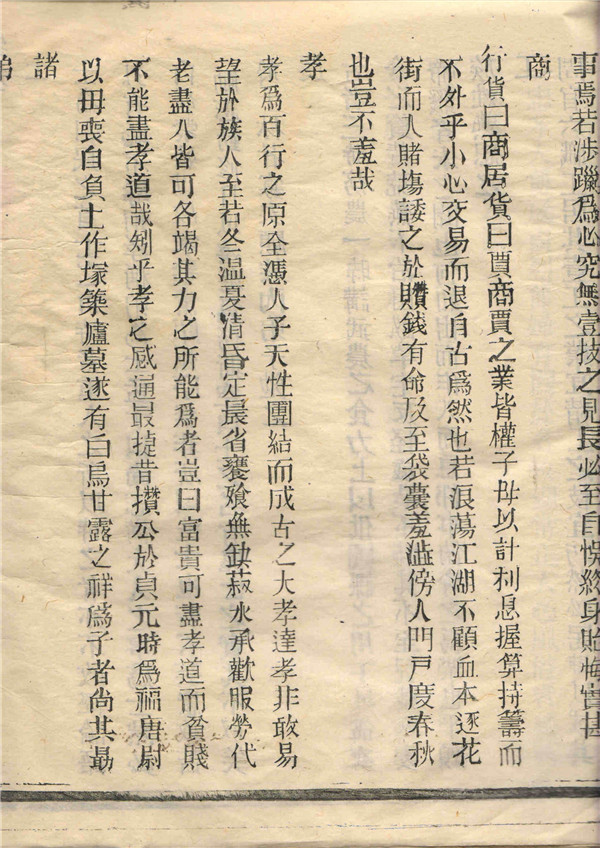 事焉若涉躐為心究無壹技之見長必至自悞終身貽悔實甚
商
行貨曰商居貨曰賈商賈之業皆權子母以計利息握算持籌而
不外乎小心交易而退自古為然也若浪蕩江湖不顧血本逐花
街而入賭塲諉之於賺錢有命及至袋囊羞澁傍人門戶度春秋
也豈不羞哉
孝
孝為百行之原全憑人子天性團結而成古之大孝達孝非敢易
望於族人至若冬温夏凊昏定晨省饔飧無缺菽水承歡服勞代
老盡人皆可各竭其力之所能為者豈曰富貴可盡孝道而貧賤
不能盡孝道哉矧乎孝之感通最捷昔攢公於貞元時為福唐尉
以母喪自負土作塚築廬墓遂有白烏甘露之祥為子者尚其勗
諸
弟